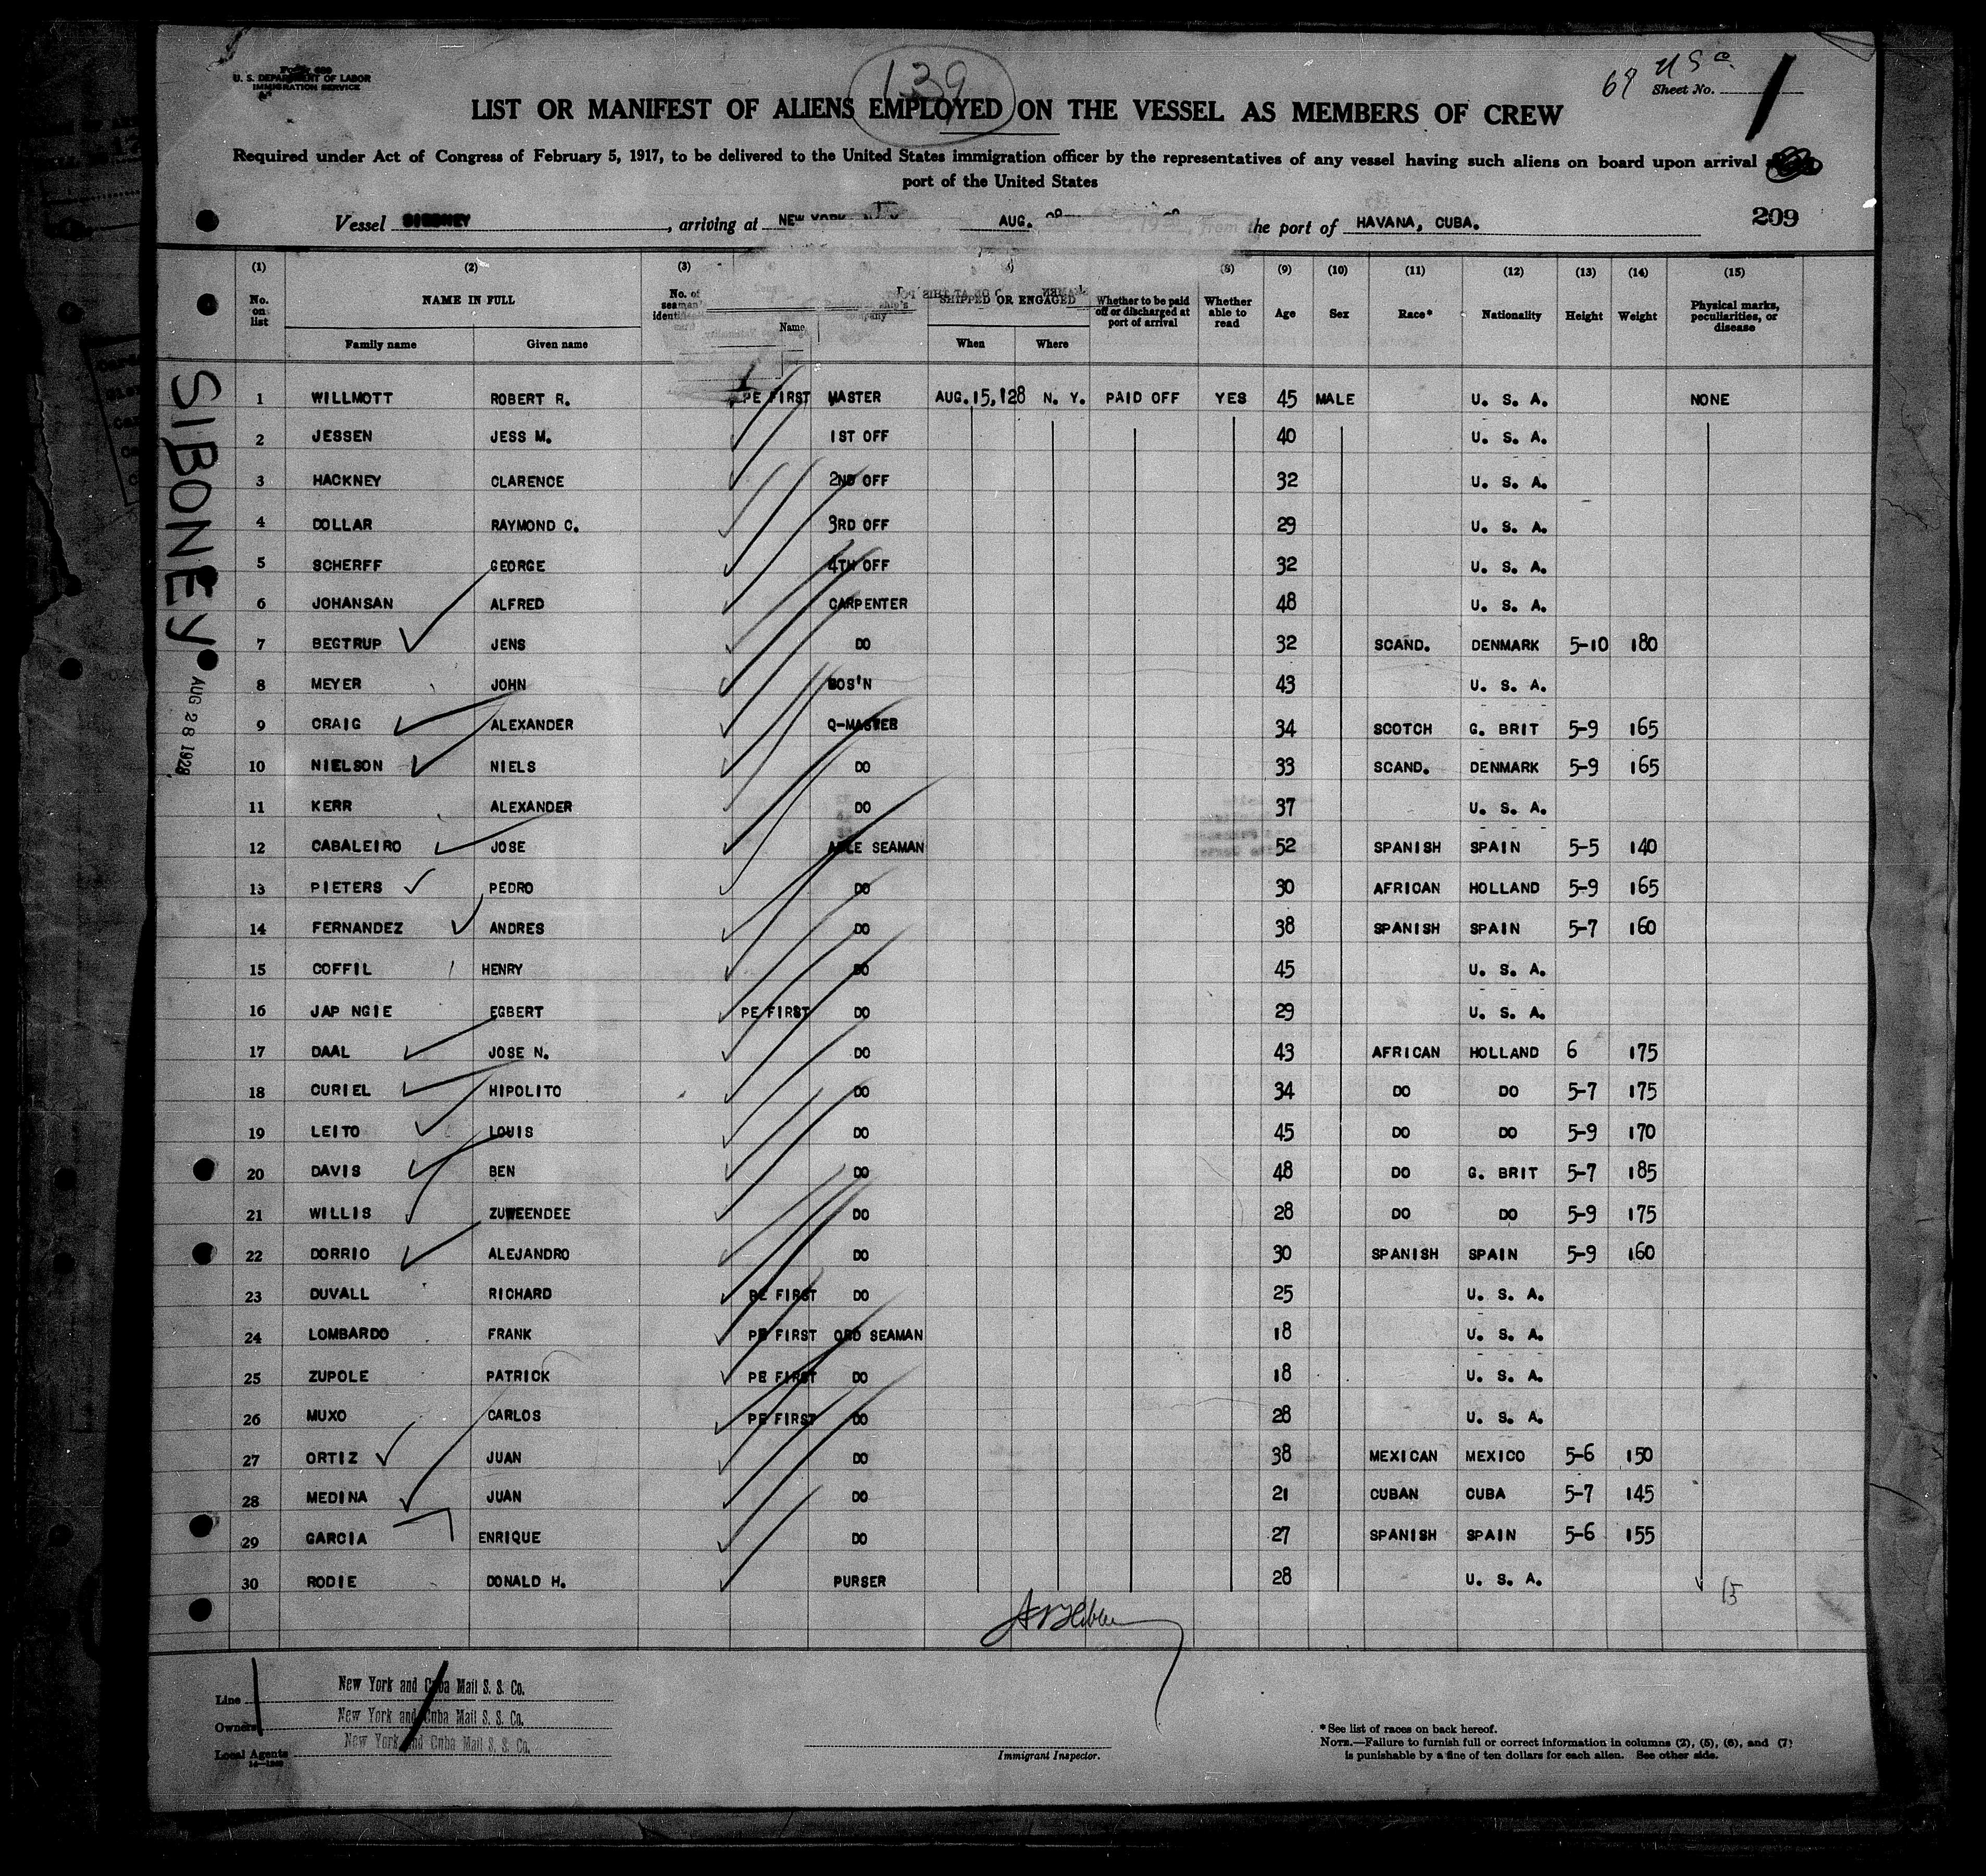 U. S. DEPARTMENT OF LABOR
IMMIGRATION SERVICE
139
69 U S a.
Sheet No. 1
LIST OR MANIFEST OF ALIENS EMPLOYED ON THE VESSEL AS MEMBERS OF CREW
Required under Act of Congress of February 5, 1917, to be delivered to the United States immigration officer by the representatives of any vessel having such aliens on board upon arrival
port of the United States
Vessel SIBONEY, arriving at NEW YORK, N.Y. AUG. from the port of HAVANA, CUBA. 209
(1) (2) (3) (8) (9) (10) (11) (12) (13) (14) (15)
No. on list NAME IN FULL No. of seaman's SHIPPED OR ENGAGED Whether to be paid off or discharged at port of arrival Whether able to read Age Sex Race* Nationality Height Weight Physical marks, peculiarities, or disease
Family name Given name Name When Where
SIBONEY
AUG 28 1928
1 WILLMOTT ROBERT R. PE FIRST MASTER AUG. 15, 128 N. Y. PAID OFF YES 45 MALE U. S. A. NONE
2 JESSEN JESS M. 1ST OFF 40 U. S. A.
3 HACKNEY CLARENCE 2ND OFF 32 U. S. A.
4 DOLLAR RAYMOND C. 3RD OFF 29 U. S. A.
5 SCHERFF GEORGE 4TH OFF 32 U. S. A.
6 JOHANSAN ALFRED CARPENTER 48 U. S. A.
7 BEGTRUP JENS DO 32 SCAND. DENMARK 5-10 180
8 MEYER JOHN BOS'N 43 U. S. A.
9 CRAIG ALEXANDER Q-MASTER 34 SCOTCH G. BRIT 5-9 165
10 NIELSON NIELS DO 33 SCAND. DENMARK 5-9 165
11 KERR ALEXANDER DO 37 U. S. A.
12 CABALEIRO JOSE ABLE SEAMAN 52 SPANISH SPAIN 5-5 140
13 PIETERS PEDRO DO 30 AFRICAN HOLLAND 5-9 165
14 FERNANDEZ ANDRES DO 38 SPANISH SPAIN 5-7 160
15 COFFIL HENRY DO 45 U. S. A.
16 JAP NGIE EGBERT PE FIRST DO 29 U. S. A.
17 DAAL JOSE N. DO 43 AFRICAN HOLLAND 6 175
18 CURIEL HIPOLITO DO 34 DO DO 5-7 175
19 LEITO LOUIS DO 45 DO DO 5-9 170
20 DAVIS BEN DO 48 DO G. BRIT 5-7 185
21 WILLIS ZUWEENDEE DO 28 DO DO 5-9 175
22 DORRIO ALEJANDRO DO 30 SPANISH SPAIN 5-9 160
23 DUVALL RICHARD PE FIRST DO 25 U. S. A.
24 LOMBARDO FRANK PE FIRST ORD SEAMAN 18 U. S. A.
25 ZUPOLE PATRICK PE FIRST DO 18 U. S. A.
26 MUXO CARLOS PE FIRST DO 28 U. S. A.
27 ORTIZ JUAN DO 38 MEXICAN MEXICO 5-6 150
28 MEDINA JUAN DO 21 CUBAN CUBA 5-7 145
29 GARCIA ENRIQUE DO 27 SPANISH SPAIN 5-6 155
30 RODIE DONALD H. PURSER 28 U. S. A.
15
Line New York and Cuba Mail S. S. Co.
Owners New York and Cuba Mail S. S. Co.
Local Agents New York and Cuba Mail S. S. Co.
Immigrant Inspector.
*See list of races on back hereof.
NOTE.—Failure to furnish full or correct information in columns (2), (5), (6), and (7)
is punishable by a fine of ten dollars for each alien. See other side.